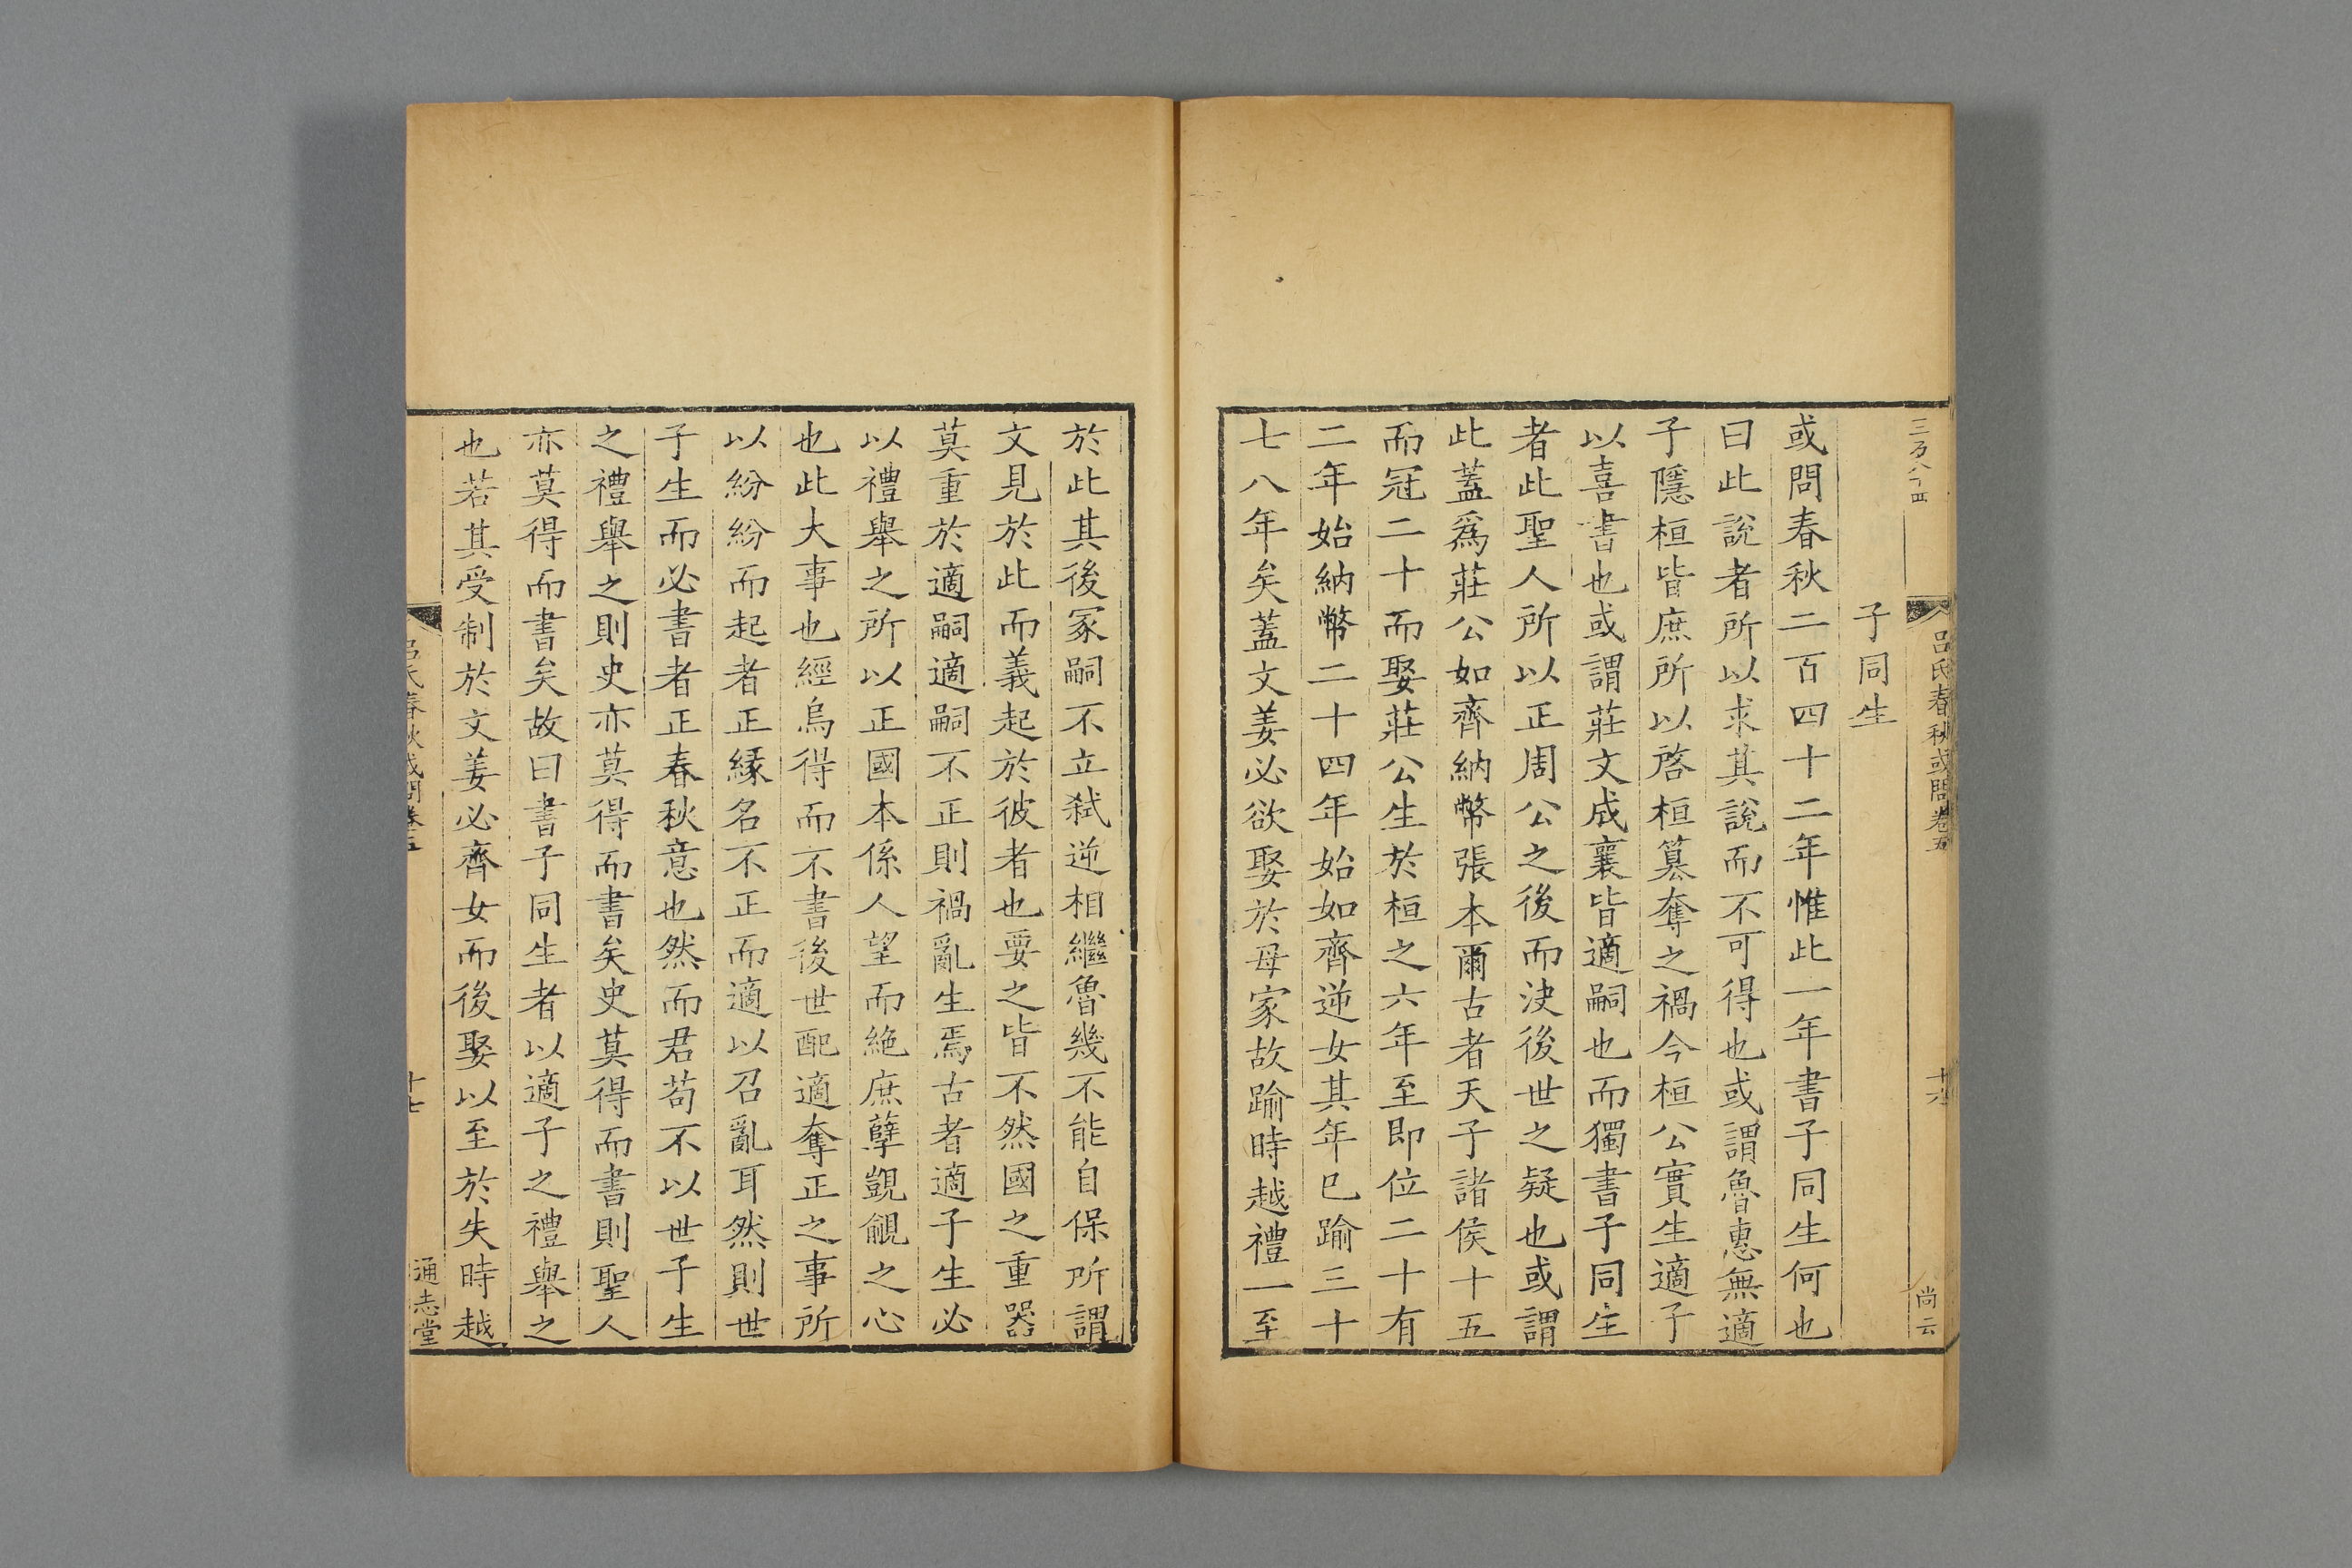 呂氏春秋或問卷五
十六
尚云
子同生
或問春秋二百四十二年惟此一年書子同生何也
曰此說者所以求其說而不可得也或謂魯惠無適
子隱桓皆庶所以啓桓篡奪之禍今桓公實生適子
以喜書也或謂莊文成襄皆適嗣也而獨書子同生
者此聖人所以正周公之後而決後世之疑也或謂
此蓋爲莊公如齊納幣張本爾古者天子諸侯十五
而冠二十而娶莊公生於桓之六年至即位二十有
二年始納幣二十四年始如齊逆女其年已踰三十
七八年矣蓋文姜必欲娶於母家故踰時越禮一至
於此其後冢嗣不立弒逆相繼魯幾不能自保所謂
文見於此而義起於彼者也要之皆不然國之重器
莫重於適嗣適嗣不正則禍亂生焉古者適子生必
以禮舉之所以正國本係人望而絶庶孽覬覦之心
也此大事也經烏得而不書後世配適奪正之事所
以紛紛而起者正緣名不正而適以召亂耳然則世
子生而必書者正春秋意也然而君苟不以世子生
之禮舉之則史亦莫得而書矣史莫得而書則聖人
亦莫得而書矣故曰書子同生者以適子之禮舉之
也若其受制於文姜必齊女而後娶以至於失時越
呂氏春秋或問卷五
十七
通志堂